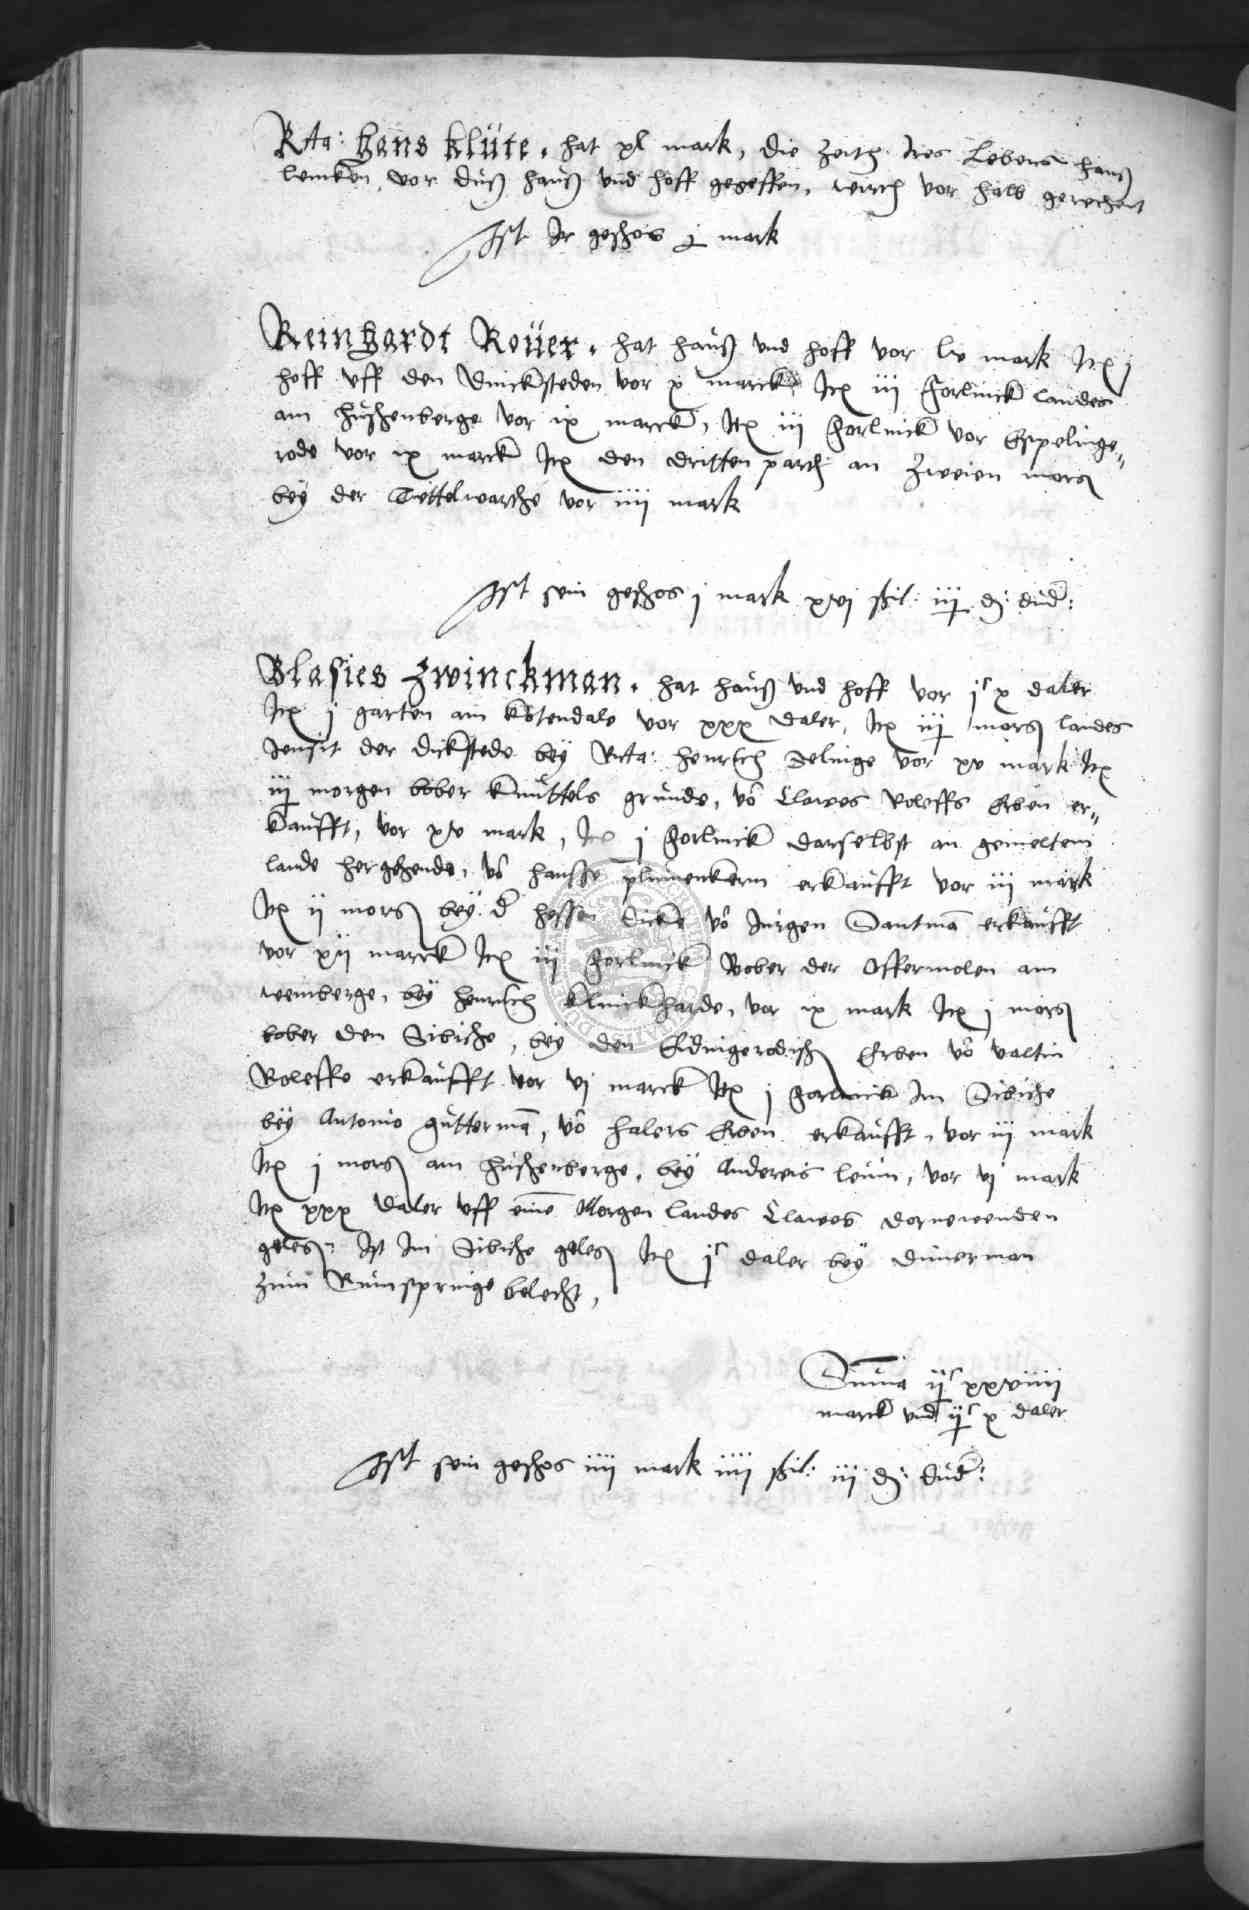 Rcta: Hans Klüte, hat xl mark, die Zeith Ires Lebens hanß
lemken, vor duß hauß vnd hoff gegeffen, wirth vor halb gerechent
Ist Ir geschos j mark
Reinhardt Roüer, hat hauß vnd hoff vor lv mark Itẽ j
hoff vff den Dincksteden vor x marck Itẽ iij Forlinck landes
am Hushenberge vor ix marck, Itẽ iij Forlinck vor Espelinge„
rode vor ix marck Itẽ den dritten parth an Zweien morg
bey der Tettelwarthe vor iiij mark
Ist sein geschos j mark xvj schil: iij d: dud:
Blasies Zwinckman, hat hauß vnd hoff vor jc x daler
Itẽ j garten am Kotendale vor xxx daler, Itẽ iij morg landes
Jensit der dickstede bey Rcta: henrich Jelinge vor xv mark Itẽ
iij morgen bober Knüttels grunde, võ Clawes Roleffs Erben er„
kaufft, vor xv mark, Itẽ j Forlinck darselbst an gemeltem
lande hergehende, võ hansse plumenkern erkaufft vor iij mark
Itẽ ij morg bey d hessen dicke võ Jurgen Santmã erkaufft
vor xij marck Itẽ iij Forlinck Bober der Offermolen am
weinberge, bey henrich Klinckharde, vor ix mark Itẽ j morg
bober den Sibiche, bey den Edingerodisch Erben võ valtin
Roleffs erkaufft vor vj marck Itẽ j Forlinck Im Sibiche
bey Antonio guttermã, võ halers Erben erkaufft, vor iij mark
Itẽ j morg am Hushenberge, bey Andereis leuin, vor vj mark
Itẽ xxx daler vff eine Morgen landes Clawes dornewenden
geleg: Ist Im Sibiche geleg Itẽ jc daler bey dunerman
Zum Rumspringe belecht,
Suma ijc xxviiij
marck vnd ijc x daler
Ist sein geschos iiij mark iiij schil: iij d: dud: